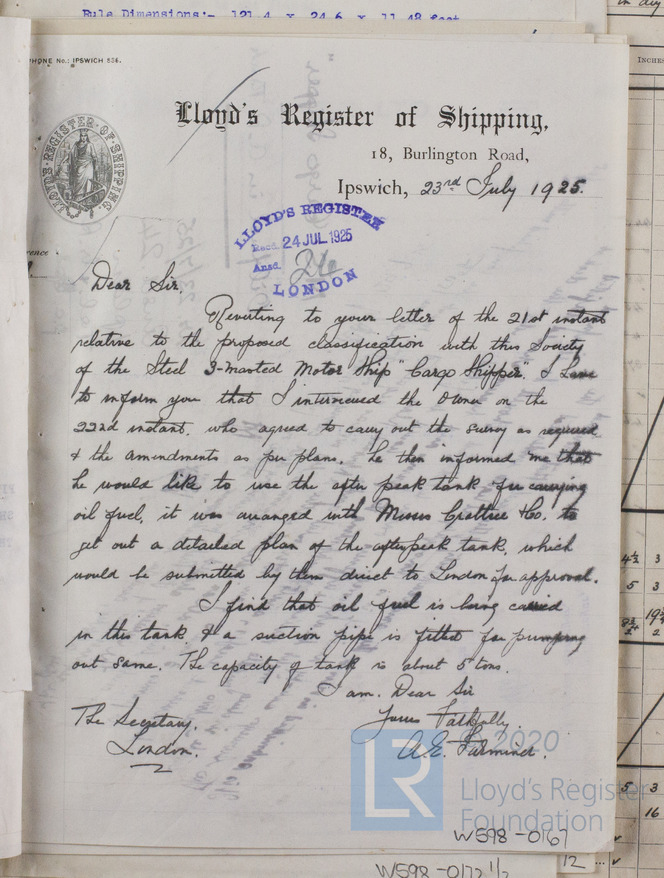 Rule Dimensions:- 121.4 x 24.6 x 11.48 feet
PHONE NO.: IPSWICH 836.
Lloyd's Register of Shipping,
LLOYDS REGISTER OF SHIPPING
18, Burlington Road,
Ipswich, 23rd July 1925.
LLOYD'S REGISTER
Recd. 24 JUL 1925
Ansd.
LONDON
Dear Sir.
Reverting to your letter of the 21st instant
relative to the proposed classification with this Society
of the Steel 3-masted Motor Ship "Cargo Shipper". I have
to inform you that I interviewed the Owner on the
22nd instant, who agreed to carry out the survey as required
& the amendments as per plans. he then informed me that
he would like to use the after peak tank for carrying
oil fuel, it was arranged with Messrs Crabtree & Co. to
get out a detailed plan of the after peak tank, which
would be submitted by them direct to London for approval.
I find that oil fuel is being carried
in this tank & a suction pipe is fitted for pumping
out same. The capacity of tank is about 5 tons.
I am. Dear Sir
Yours Faithfully.
The Secretary.
London.
A.E.
2020
LR
Lloyd's Register
Foundation
W598-0167
W598-0172 1/2
INCHES
12